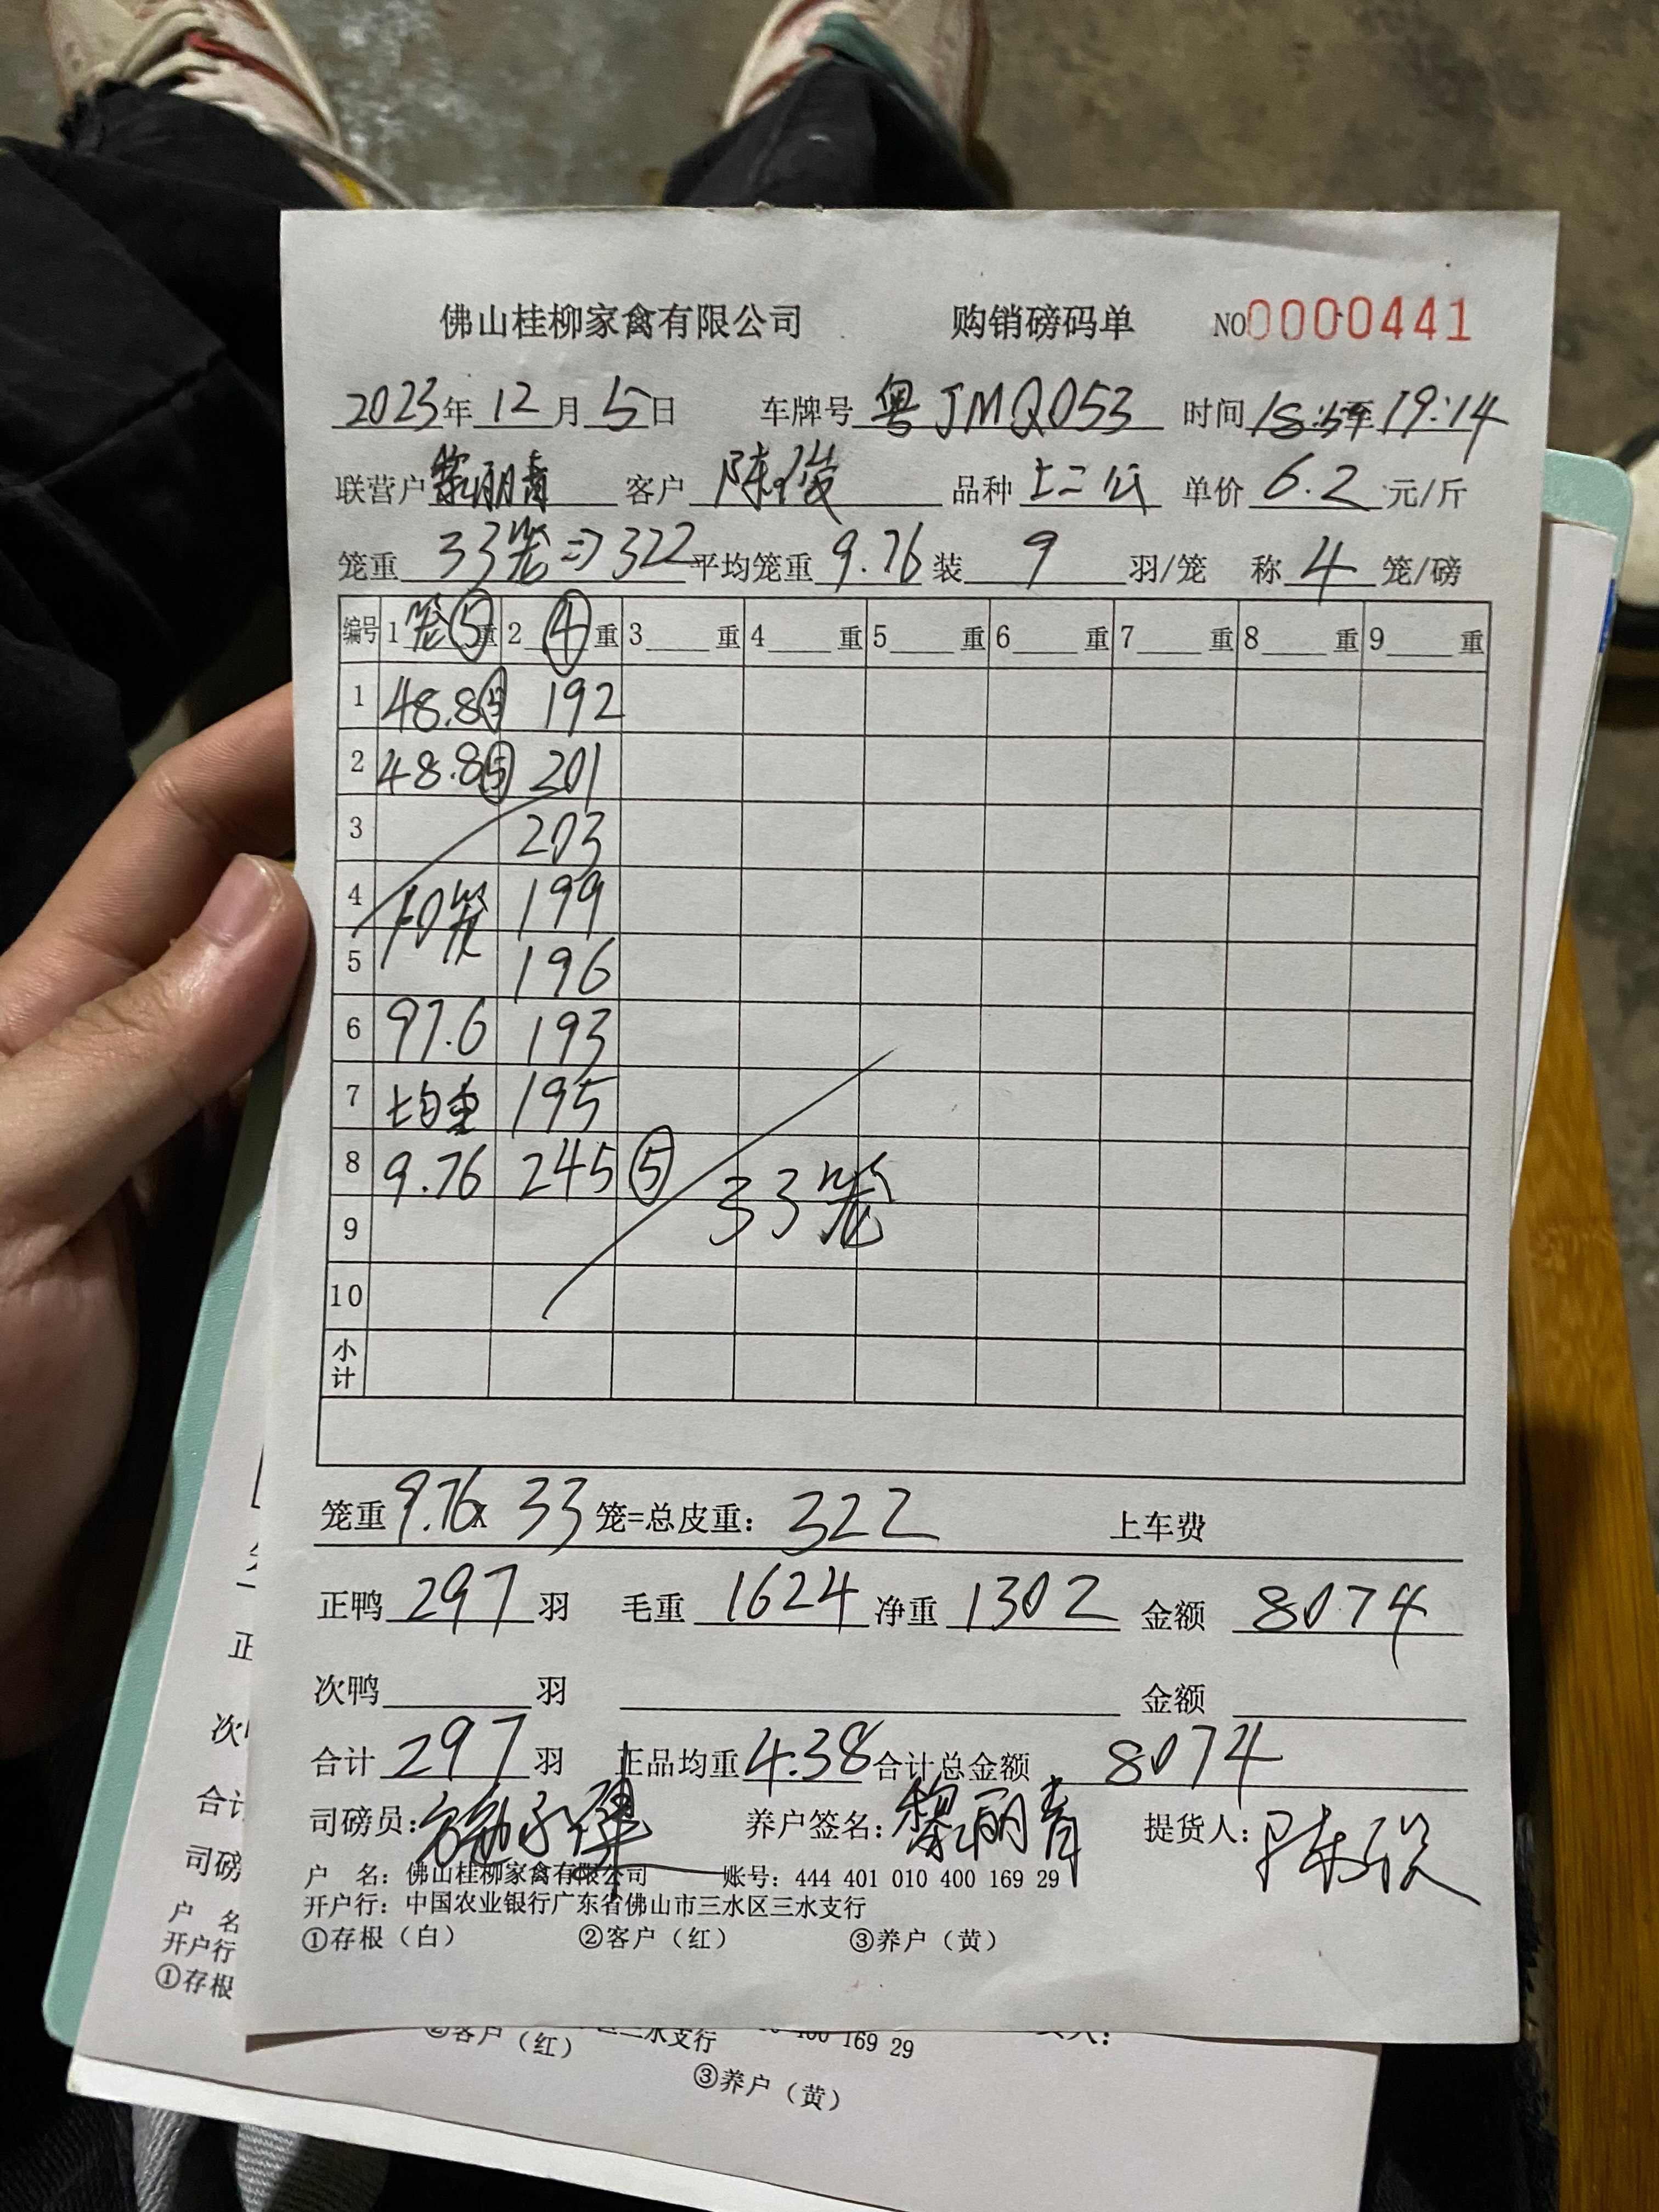 佛山桂柳家禽有限公司 购销磅码单 NO0000441
2023年 12 月 5日 车牌号 粤JMQ053 时间 18:59至19:14
联营户 黎丽青 客户 陈俊 品种 上二公 单价 6.2 元/斤
笼重 33笼⇒322 平均笼重 9.76 装 9 羽/笼 称 4 笼/磅
编号 1 笼⑤重 2 ④ 重 3 重 4 重 5 重 6 重 7 重 8 重 9 重
1 48.8⑤ 192
2 48.8⑤ 201
3 203
4 10笼 199
5 196
6 97.6 193
7 均重 195
8 9.76 245⑤ 33笼
9
10
小计
笼重 9.76x 33 笼=总皮重: 322 上车费
正鸭 297 羽 毛重 1624 净重 1302 金额 8074
次鸭 羽 金额
合计 297 羽 正品均重 4.38 合计总金额 8074
司磅员: 养户签名: 黎丽青 提货人: 陈
户 名: 佛山桂柳家禽有限公司 账号: 444 401 010 400 169 29
开户行: 中国农业银行广东省佛山市三水区三水支行
①存根（白） ②客户（红） ③养户（黄）
正
次
合计
司磅
户 名
开户行
①存根
②客户（红） 三水支行 400 169 29
③养户（黄）